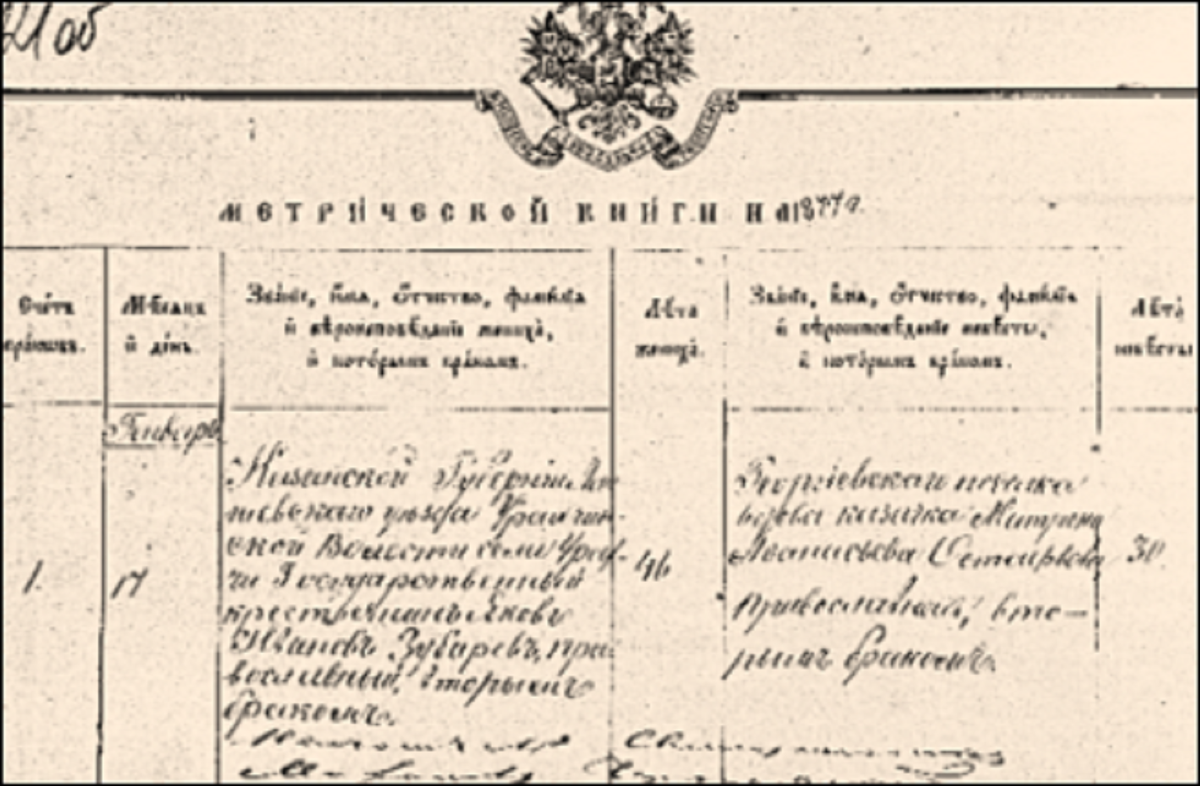 21 об
МЕТРИЧЕСКОЙ КНИГИ НА 1877 г.
Счетъ браковъ.
Мѣсяцъ и день.
Званїе, имя, отчество, фамилїа
и вѣроисповѣданїе жениха,
и которымъ бракомъ.
Лѣта жениха.
Званїе, имя, отчество, фамилїа
и вѣроисповѣданїе невѣсты,
и которымъ бракомъ.
Лѣта невѣсты
Генварь
1.
17
Губерніи
уѣзда
ской Волости села
Государственный
крестьянинъ Яковъ
Ивановъ Зубаревъ, пра-
вославный, вторымъ
бракомъ.
46
Георгіевскаго поселка
вдова казачка Матрона
православная, вто-
рымъ бракомъ.
30.